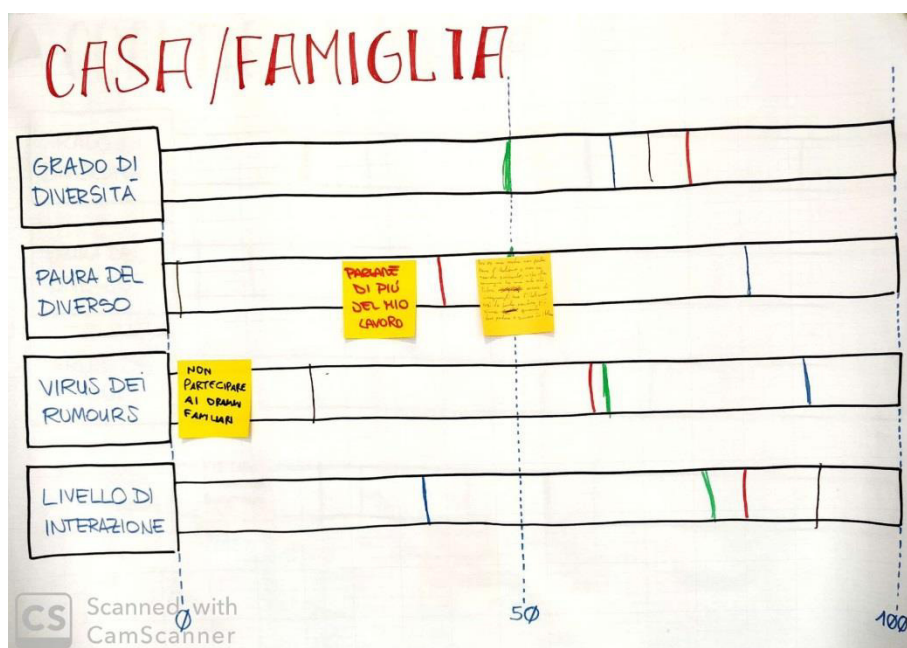 CASA/FAMIGLIA
GRADO DI
DIVERSITÀ
PAURA DEL
DIVERSO
PARLARE
DI PIÚ
DEL MIO
LAVORO
VIRUS DEI
RUMOURS
NON
PARTECIPARE
AI DRAMMI
FAMILIARI
LIVELLO DI
INTERAZIONE
0
50
100
CS
Scanned with
CamScanner